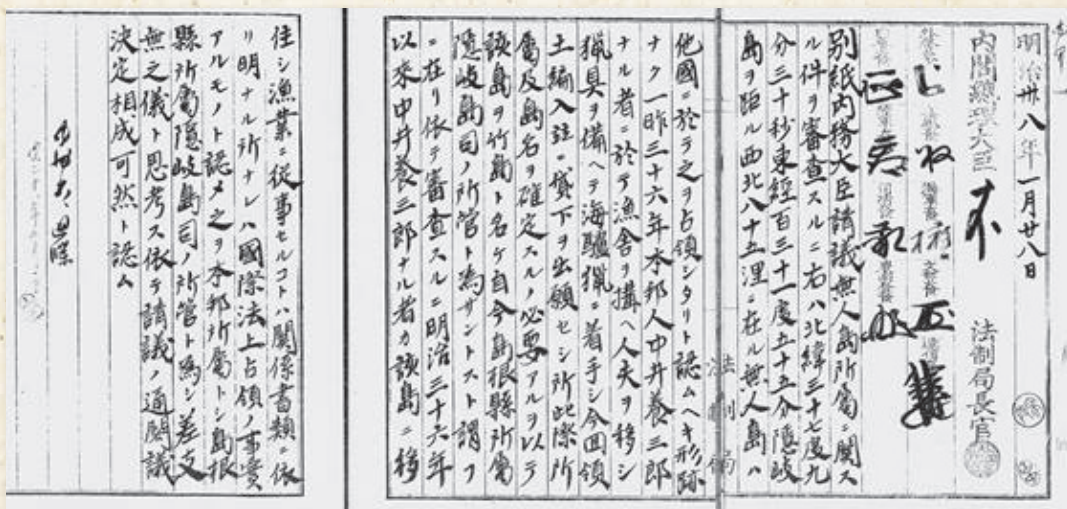 明治卅八年一月廿八日
内閣總理大臣
法制局長官
別紙内務大臣請議無人島所属ニ関ス
ル件ヲ審査スルニ右ハ北緯三十七度九
分三十秒東経百三十一度五十五分隠岐
島ヲ距ル西北八十五浬ニ在ル無人島ハ
他國ニ於テ之ヲ占領シタリト認ムヘキ形跡
ナク一昨三十六年本邦人中井養三郎
ナル者ニ於テ漁舎ヲ搆ヘ人夫ヲ移シ
猟具ヲ備ヘテ海驢猟ニ着手シ今回領
土編入並ニ貸下ヲ出願セシ所此際所
属及島名ヲ確定スルノ必要アルヲ以テ
該島ヲ竹島ト名ケ自今島根縣所属
隠岐島司ノ所管ト為サントスト謂フ
ニ在リ依テ審査スルニ明治三十六年
以来中井養三郎ナル者カ該島ニ移
法制局
住シ漁業ニ従事セルコトハ関係書類ニ依
リ明ナル所ナレハ國際法上占領ノ事實
アルモノト認メ之ヲ本邦所属トシ島根
縣所属隠岐島司ノ所管ト為シ差支
無之儀ト思考ス依テ請議ノ通閣議
決定相成可然ト認ム